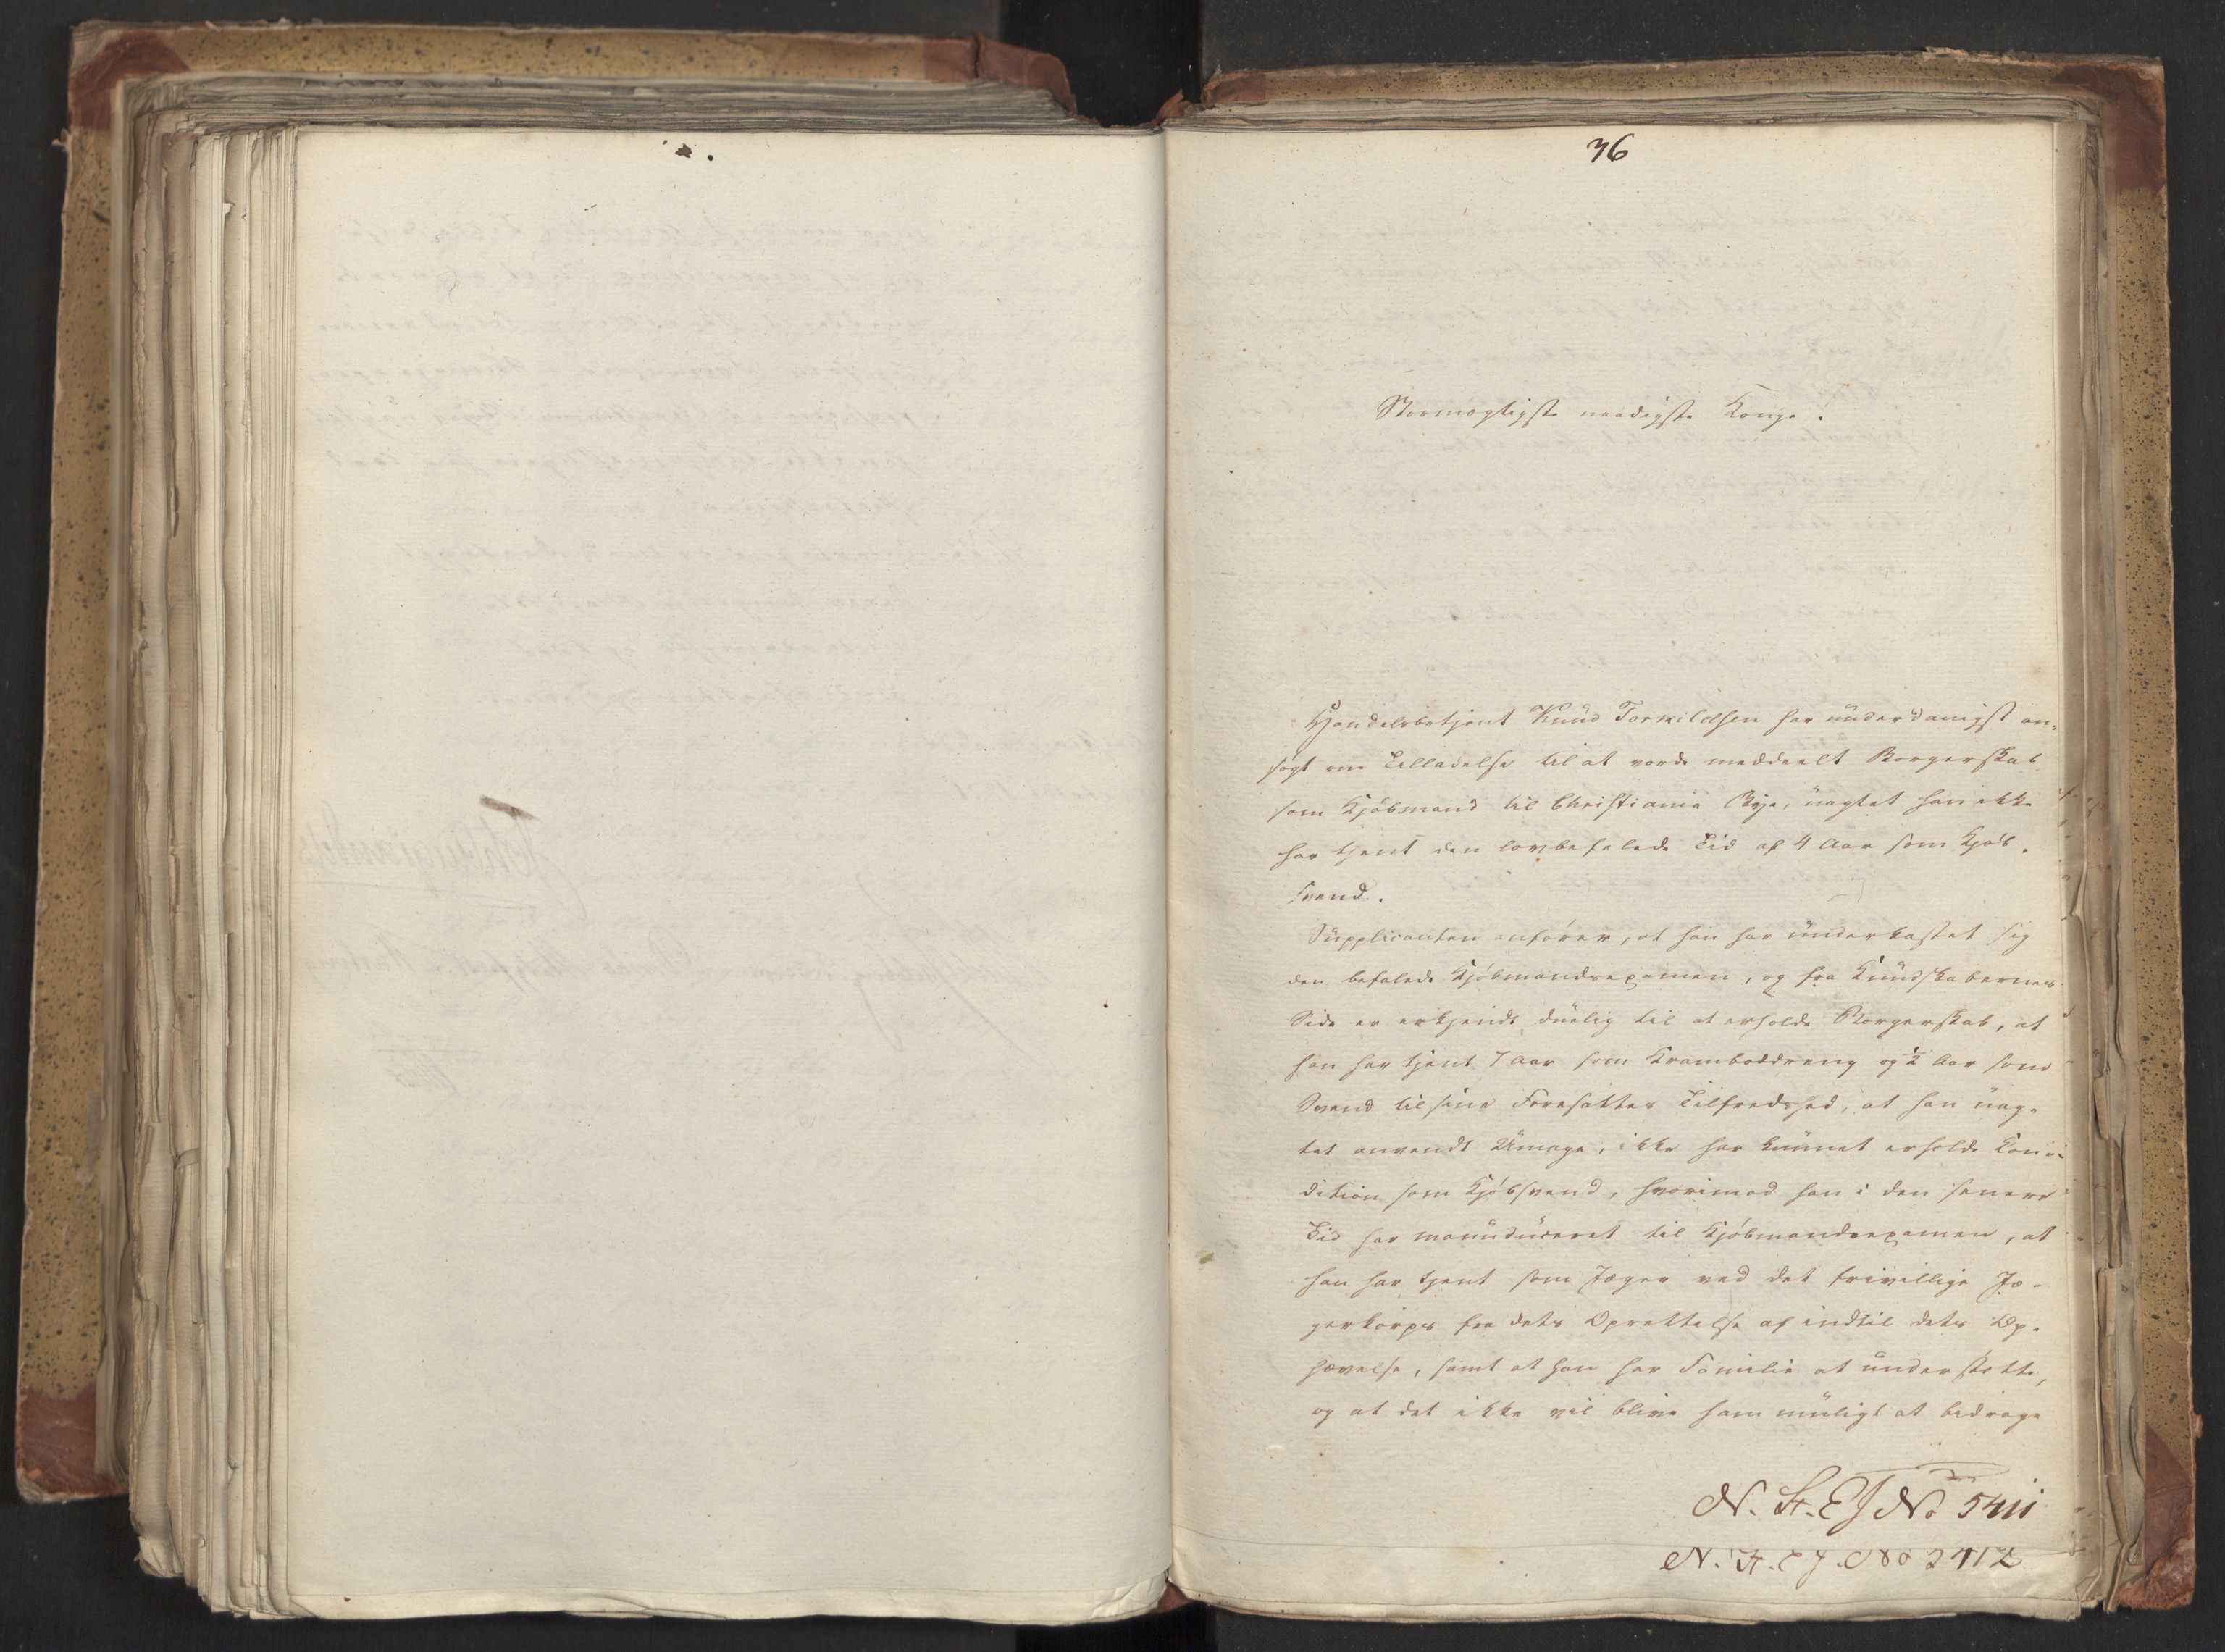 36
Stormægtigste naadigste Konge!
Handelsbetjent Knud Torkildsen har underdanigst an-
søgt om Tilladelse til at vorde meddeelt Borgerskab
som Kjøbmand til Christiania Bye, uagtet han ikke
har tjent den lovbefalede Tid af 4 Aar som Kjøb-
svend.
Supplicanten anfører, at han har underkastet sig
den befalede Kjøbmandsexamen, og fra Kundskabernes
Side er erkjendt duelig til at erholde Borgerskab, at
han har tjent 7 Aar som Kramboddreng og ½ Aar som
Svend til sine Foresattes Tilfredshed, at han uag-
tet anvendt Umage, ikke har kunnet erholde Con-
dition som Kjøbsvend, hvorimod han i den senere
Tid har manuduceret til Kjøbmandsexamen, at
han har tjent som Jæger ved det frivillige Jæ-
gerkorps fra dets Oprettelse af indtil dets Op-
hævelse, samt at han har Familie at understøtte,
og at det ikke vil blive ham muligt at bidrage
N. St. E J No 5411
N. St. E J. No 2412